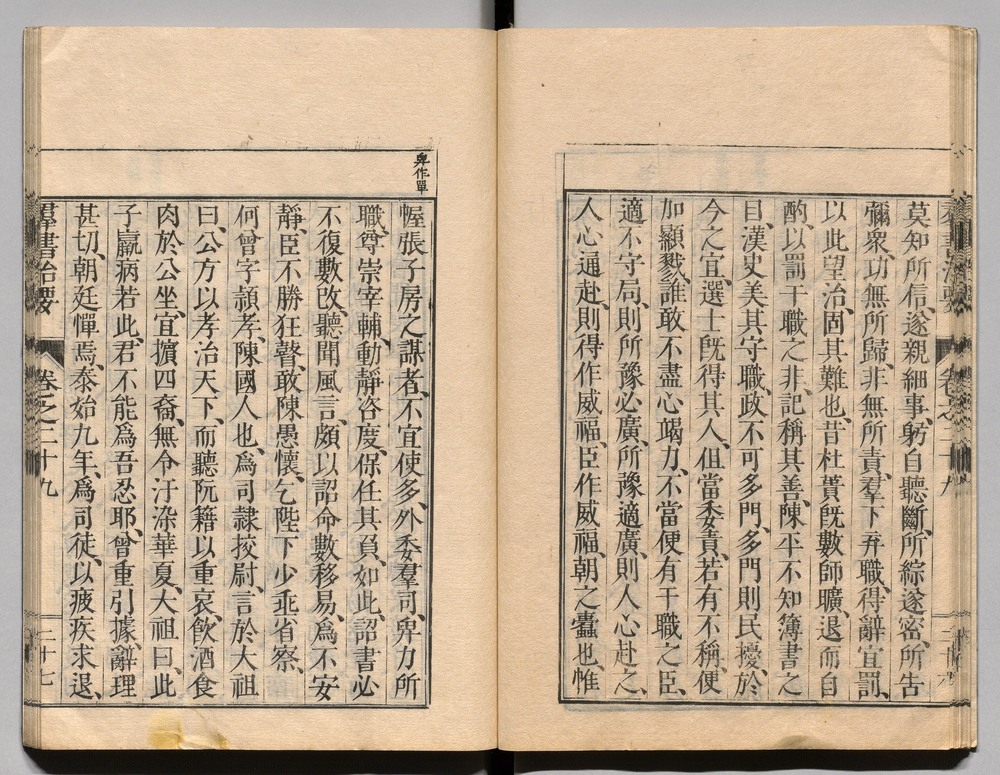 莫知所信、遂親細事、躬自聽斷、所綜遂密、所告
彌衆、功無所歸、非無所責、羣下弃職、得辭宜罰、
以此望治、固其難也、昔杜蕢旣數師曠、退而自
酌、以罰干職之非、記稱其善、陳平不知簿書之
目、漢史美其守職、政不可多門、多門則民擾、於
今之宜、選士旣得其人、但當委責、若有不稱、便
加顯戮、誰敢不盡心竭力、不當便有干職之臣、
適不守局、則所豫必廣、所豫適廣、則人心赴之、
人心通赴、則得作威福、臣作威福、朝之蠹也、惟
卑作單
幄張子房之謀者、不宜使多、外委羣司、卑力所
職、尊崇宰輔、動靜咨度、保任其負、如此、詔書必
不復數改、聽聞風言、頗以詔命數移易、爲不安
靜、臣不勝狂瞽、敢陳愚懷、乞陛下少垂省察、
何曾字頴孝、陳國人也、爲司隷挍尉、言於大祖
曰、公方以孝治天下、而聽阮籍以重哀、飲酒食
肉於公坐、宜擯四裔、無令汙染華夏、大祖曰、此
子羸病若此、君不能爲吾忍耶、曾重引據、辭理
甚切、朝廷憚焉、泰始九年、爲司徒、以疲疾求退、
羣書治要 卷之二十九 二十七